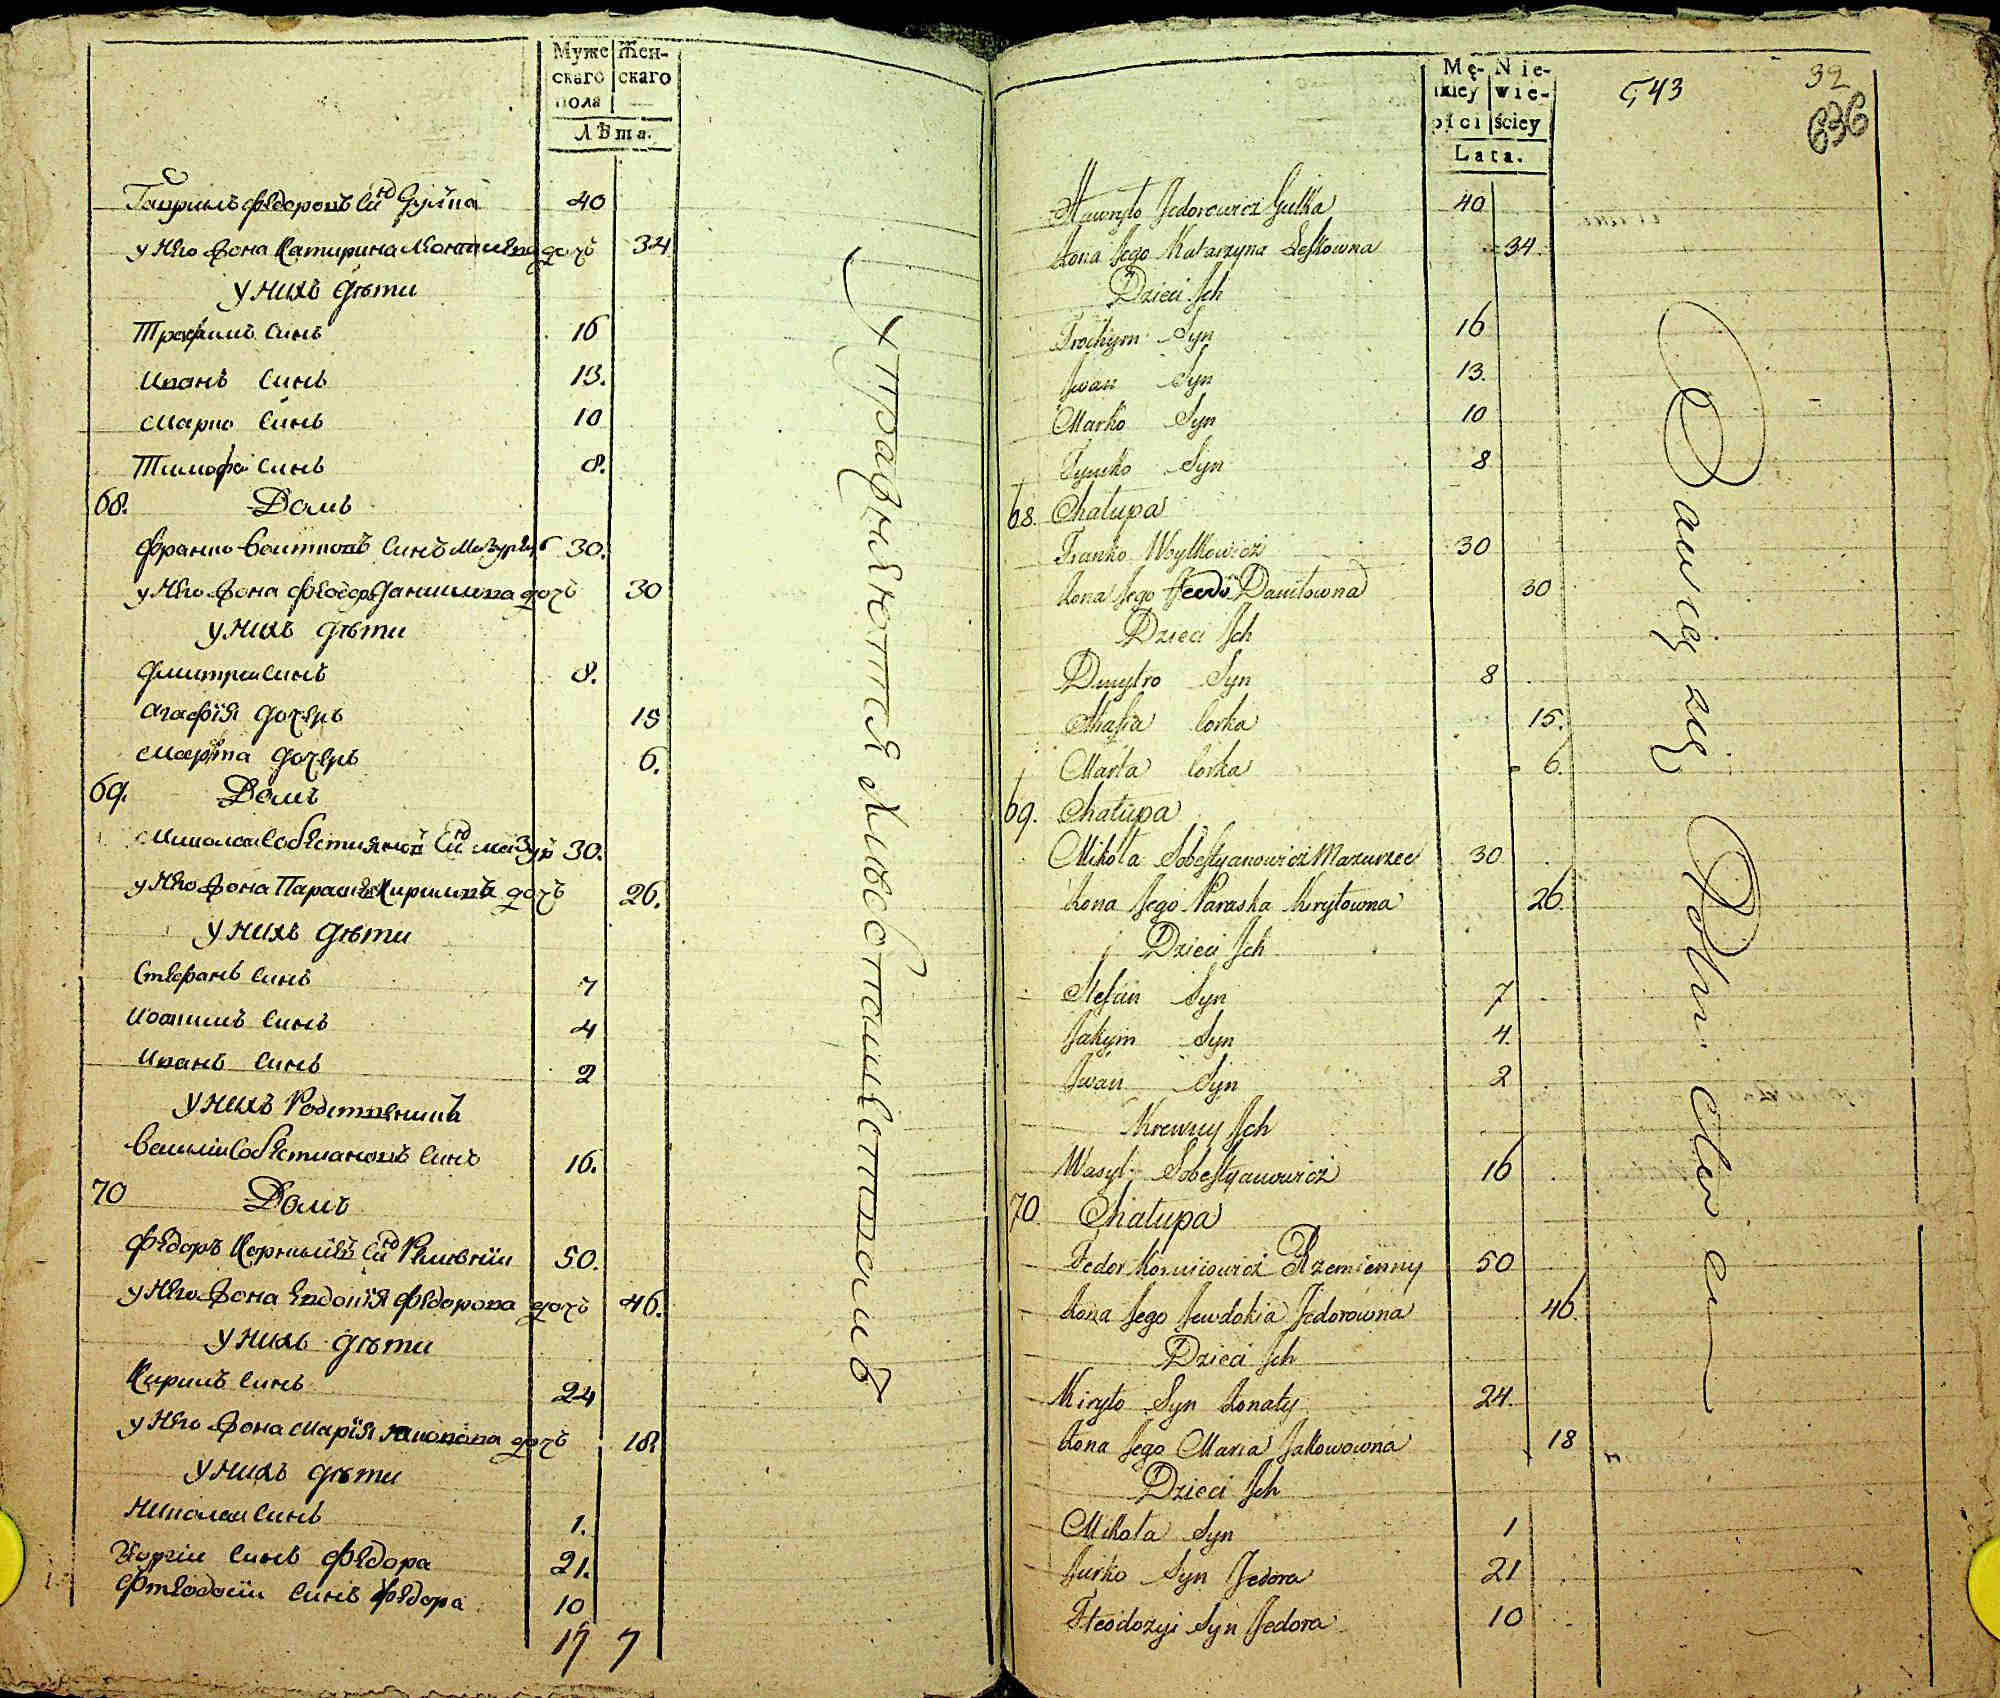 Муже
скаго
пола
Жен-
скаго
Лѣта.
Гаврилъ Федоровъ Синъ Гулка 40
у Него Жона Катирина Леонтиева дочь 34
у нихъ дѣти
Трофимъ Синъ 16
Иванъ Синъ 13.
Марко Синъ 10
Тимофей Синъ 8.
68. Домъ
Франко Воитковъ Синъ Мазурецъ 30.
у Него Жона Данилова дочь 30
у нихъ дѣти
Дмитреи Синъ 8.
Агафія дочерь 15
Марта дочерь 6.
69. Домъ
Николаи Собестияновъ Синъ Мазуръ 30.
у Него Жона Параскева Кирилова дочь 26.
у нихъ дѣти
Стефанъ Синъ 7
Иоакимъ Синъ 4
Иванъ Синъ 2
у нихъ Родственникъ
Василіи Собестиановъ Синъ 16.
70 Домъ
Федоръ Корниліевъ Синъ 50.
у Него Жона Евдокія Федорова дочь 46.
у нихъ дѣти
Кирилъ Синъ 24
у Него Жона Марія Яковова дочь 18.
у нихъ дѣти
Николаи Синъ 1.
Георгіи Синъ Федора 21.
Фтеодосіи Синъ Федора 10
17 7
Упражняются Хлѣбопашествомъ
Mę-
skiey
płci
Nie-
wie-
ściey
Lata.
543
32
636
Hawryło Fedorowicz Gulka 40
Żona Jego Katarzyna Leskowna 34.
Dzieci Ich
Trochym Syn 16
Iwan Syn 13.
Marko Syn 10
Tymko Syn 8
68. Chałupa
Franko Woytkowicz 30
Żona Jego Daniłowna 30
Dzieci Ich
Dmytro Syn 8
Ahafia Corka 15.
Marta Corka 6.
69. Chałupa
Mikoła Sobestyanowicz Mazurzec 30
Żona Jego Paraska Kryłowna 26.
Dzieci Ich
Stefan Syn 7
Jakym Syn 4.
Iwan Syn 2
Krewny Ich
Wasyl Sobestyanowicz 16
70. Chałupa
Fedor Kornijowicz Rzemienny 50
Żona Jego Jewdokia Fedorowna 46.
Dzieci Ich
Kiryło Syn Żonaty 24.
Żona Jego Maria Jakowowna 18
Dzieci Ich
Mikoła Syn 1
Jurko Syn Fedora 21
Fteodozyi Syn Fedora 10
Bawią się Rolnictwem